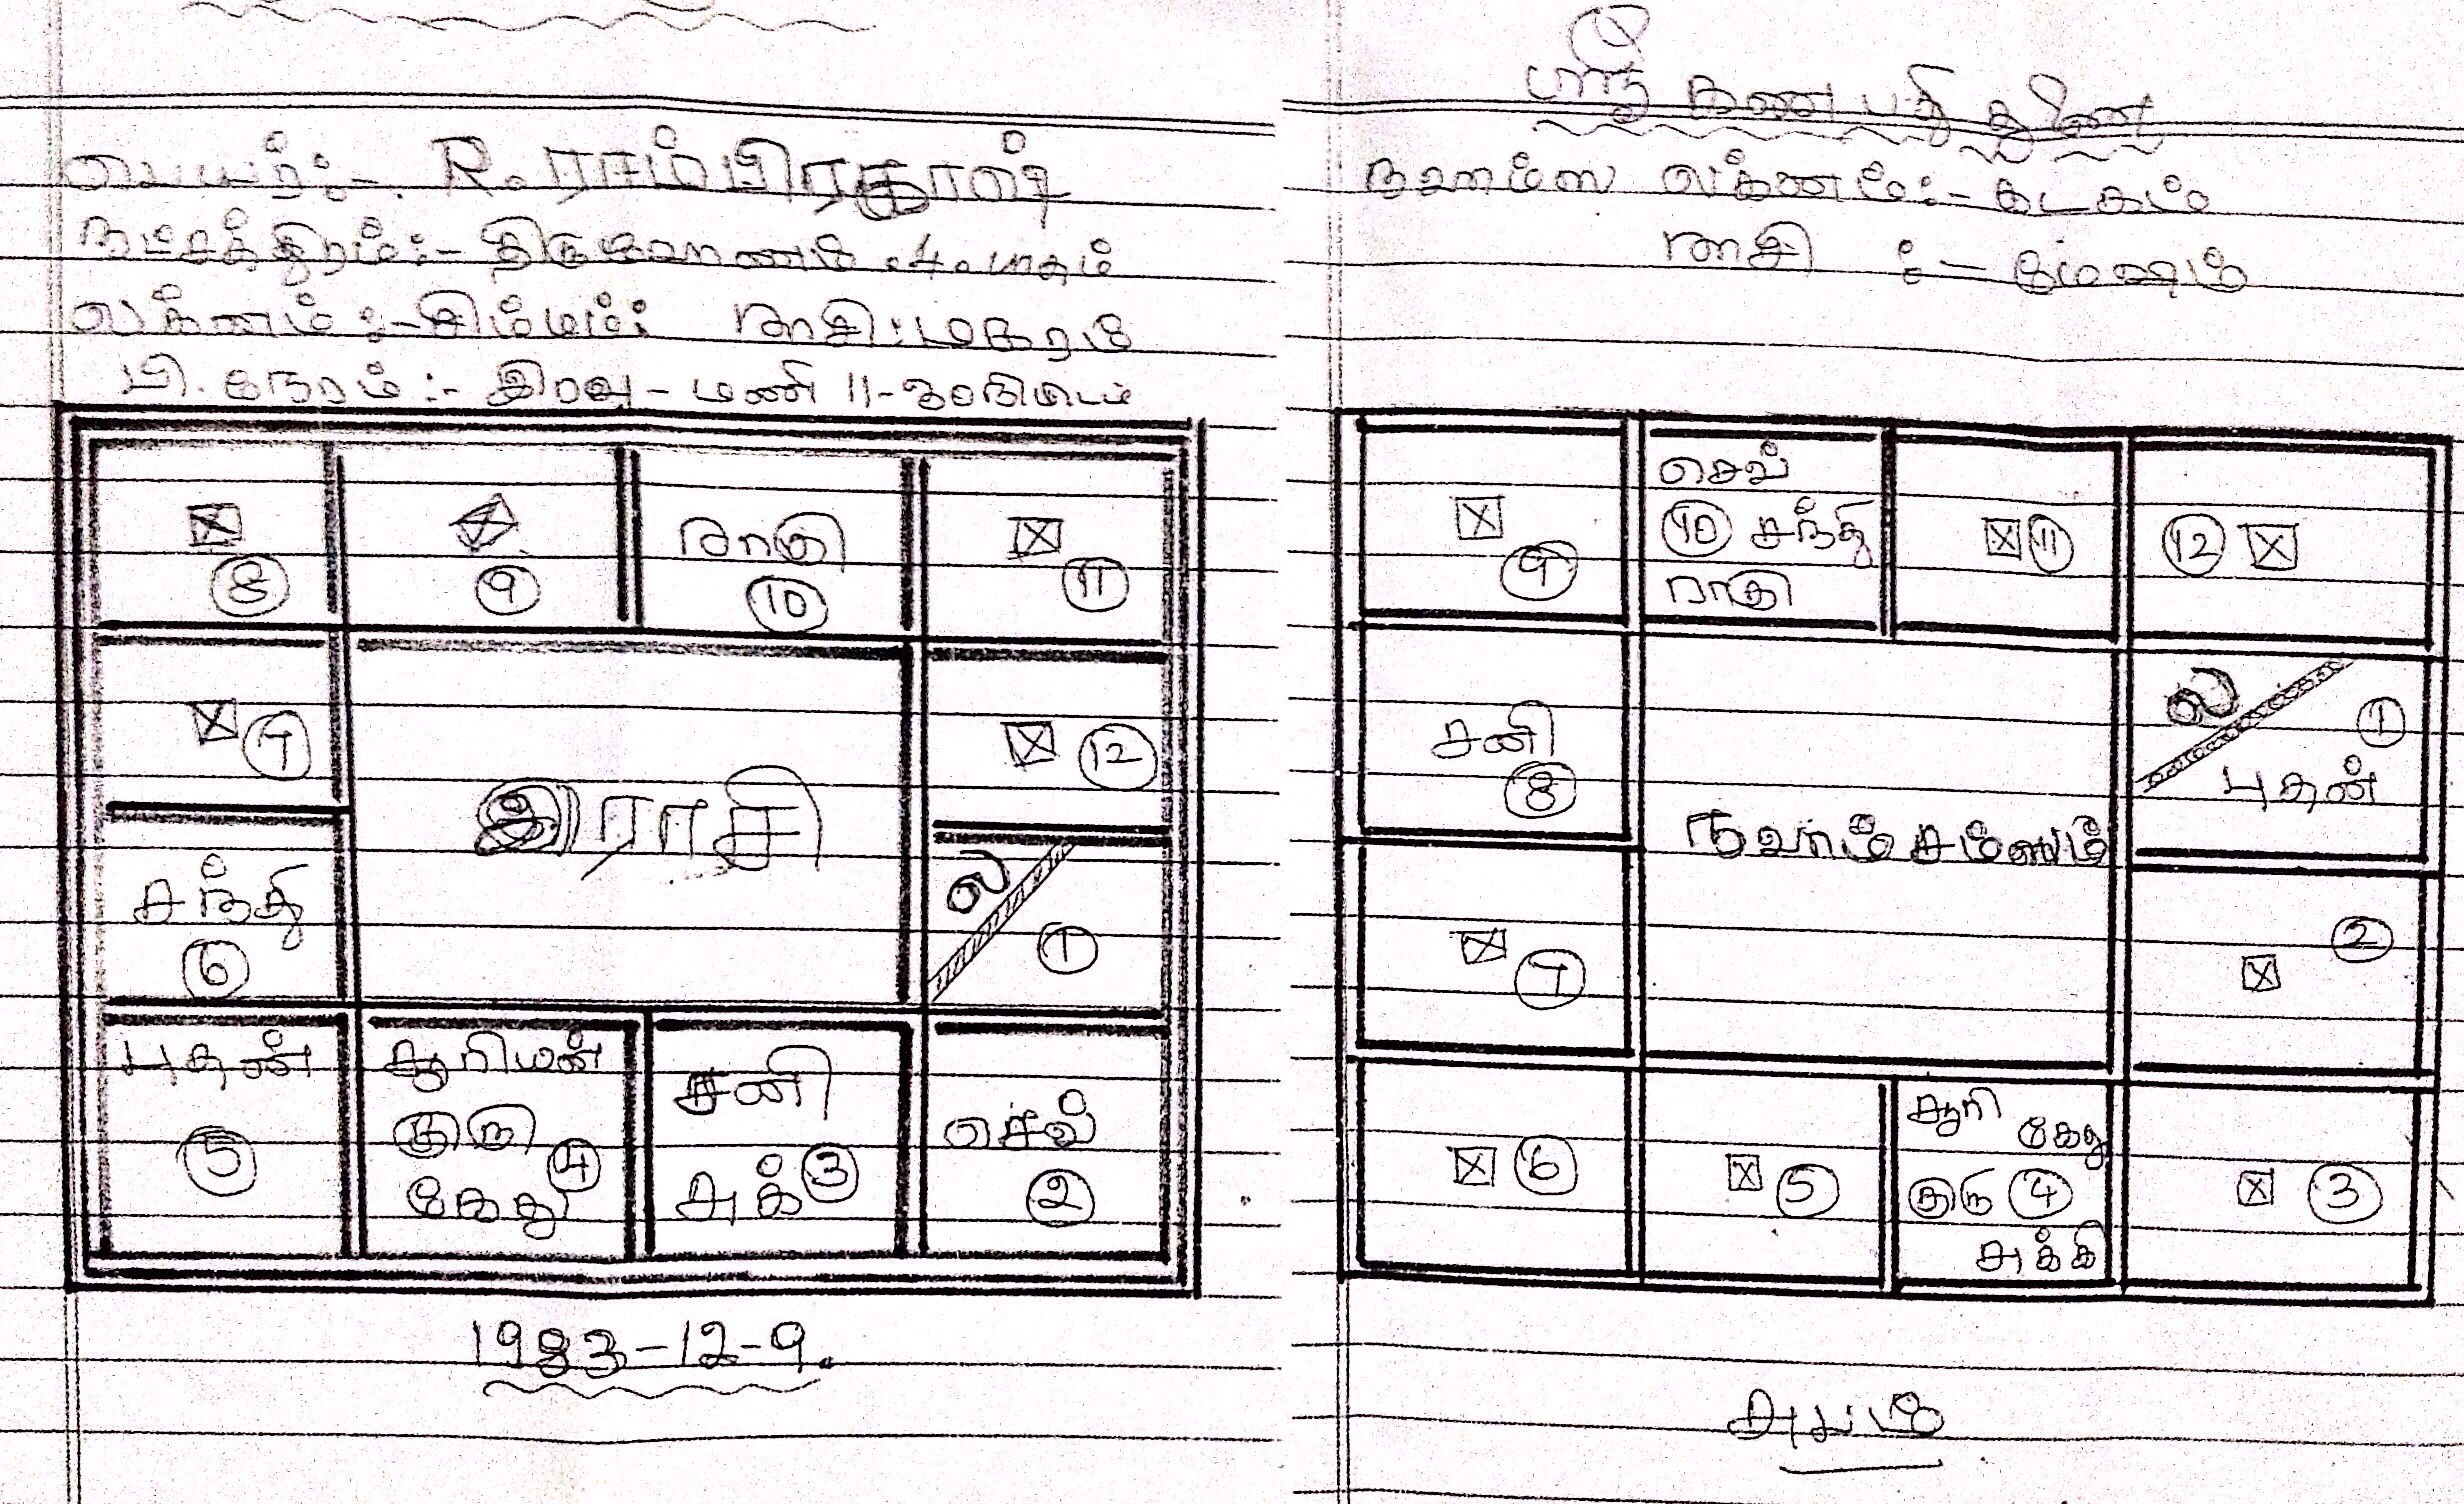 பெயர்:-. R. ராம்பிரகாஷ்
நட்சத்திரம்:- திருவோணம் .4. பாதம்
லக்னம் :- சிம்மம்: ராசி: மகரம்
பி. நேரம் :- இரவு - மணி 11-30 நிமிடம்
8
9
ராகு
10
11
7
12
இராசி
சந்தி
6
ல
1
புதன்
5
சூரியன்
குரு
4
கேது
சனி
சுக் 3
செவ்
2
1983-12-9.
ஸ்ரீ கணபதி துணை
நவாம்ஸ லக்னம் :- கடகம்
ராசி :- மேஷம்
9
செவ்
10 சந்தி
ராகு
11
12
சனி
8
ல
1
புதன்
நவாம்சம்ஸம்
7
2
6
5
சூரி
கேது
குரு 4
சுக்கி
3
சுபம்